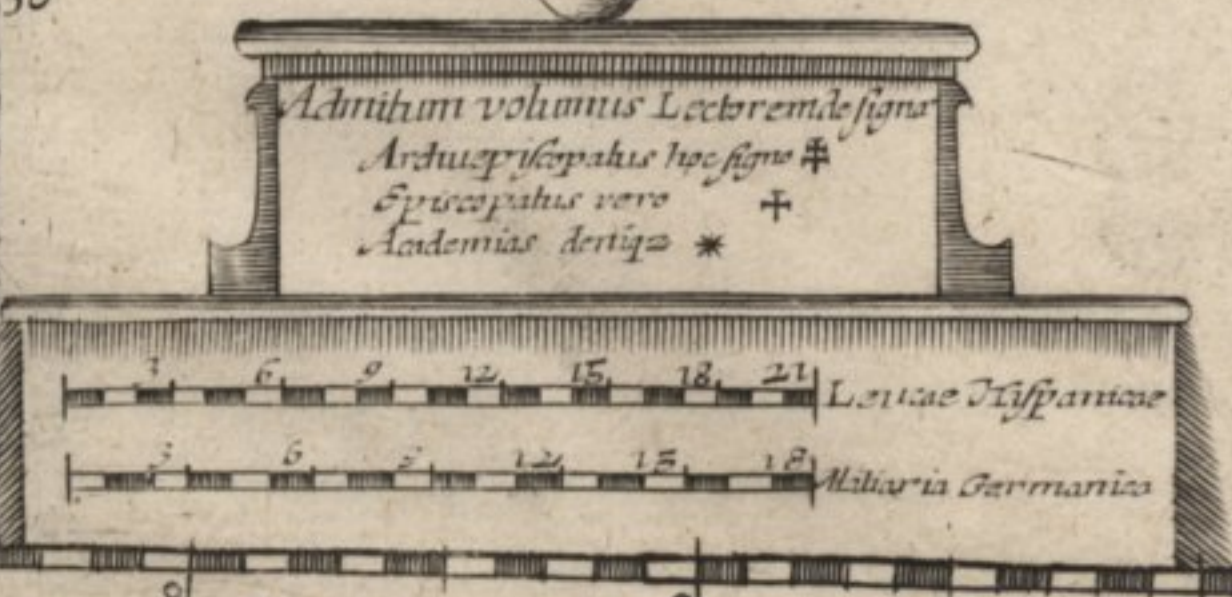 Admitum volumus Lectorem designa
Archiepiscopatus hoc signo
Episcopatus vero
Academias deniqz
3 6 9 12 15 18 21
Leucae Hispanicae
3 6 9 12 15 18
Miliaria Germanica